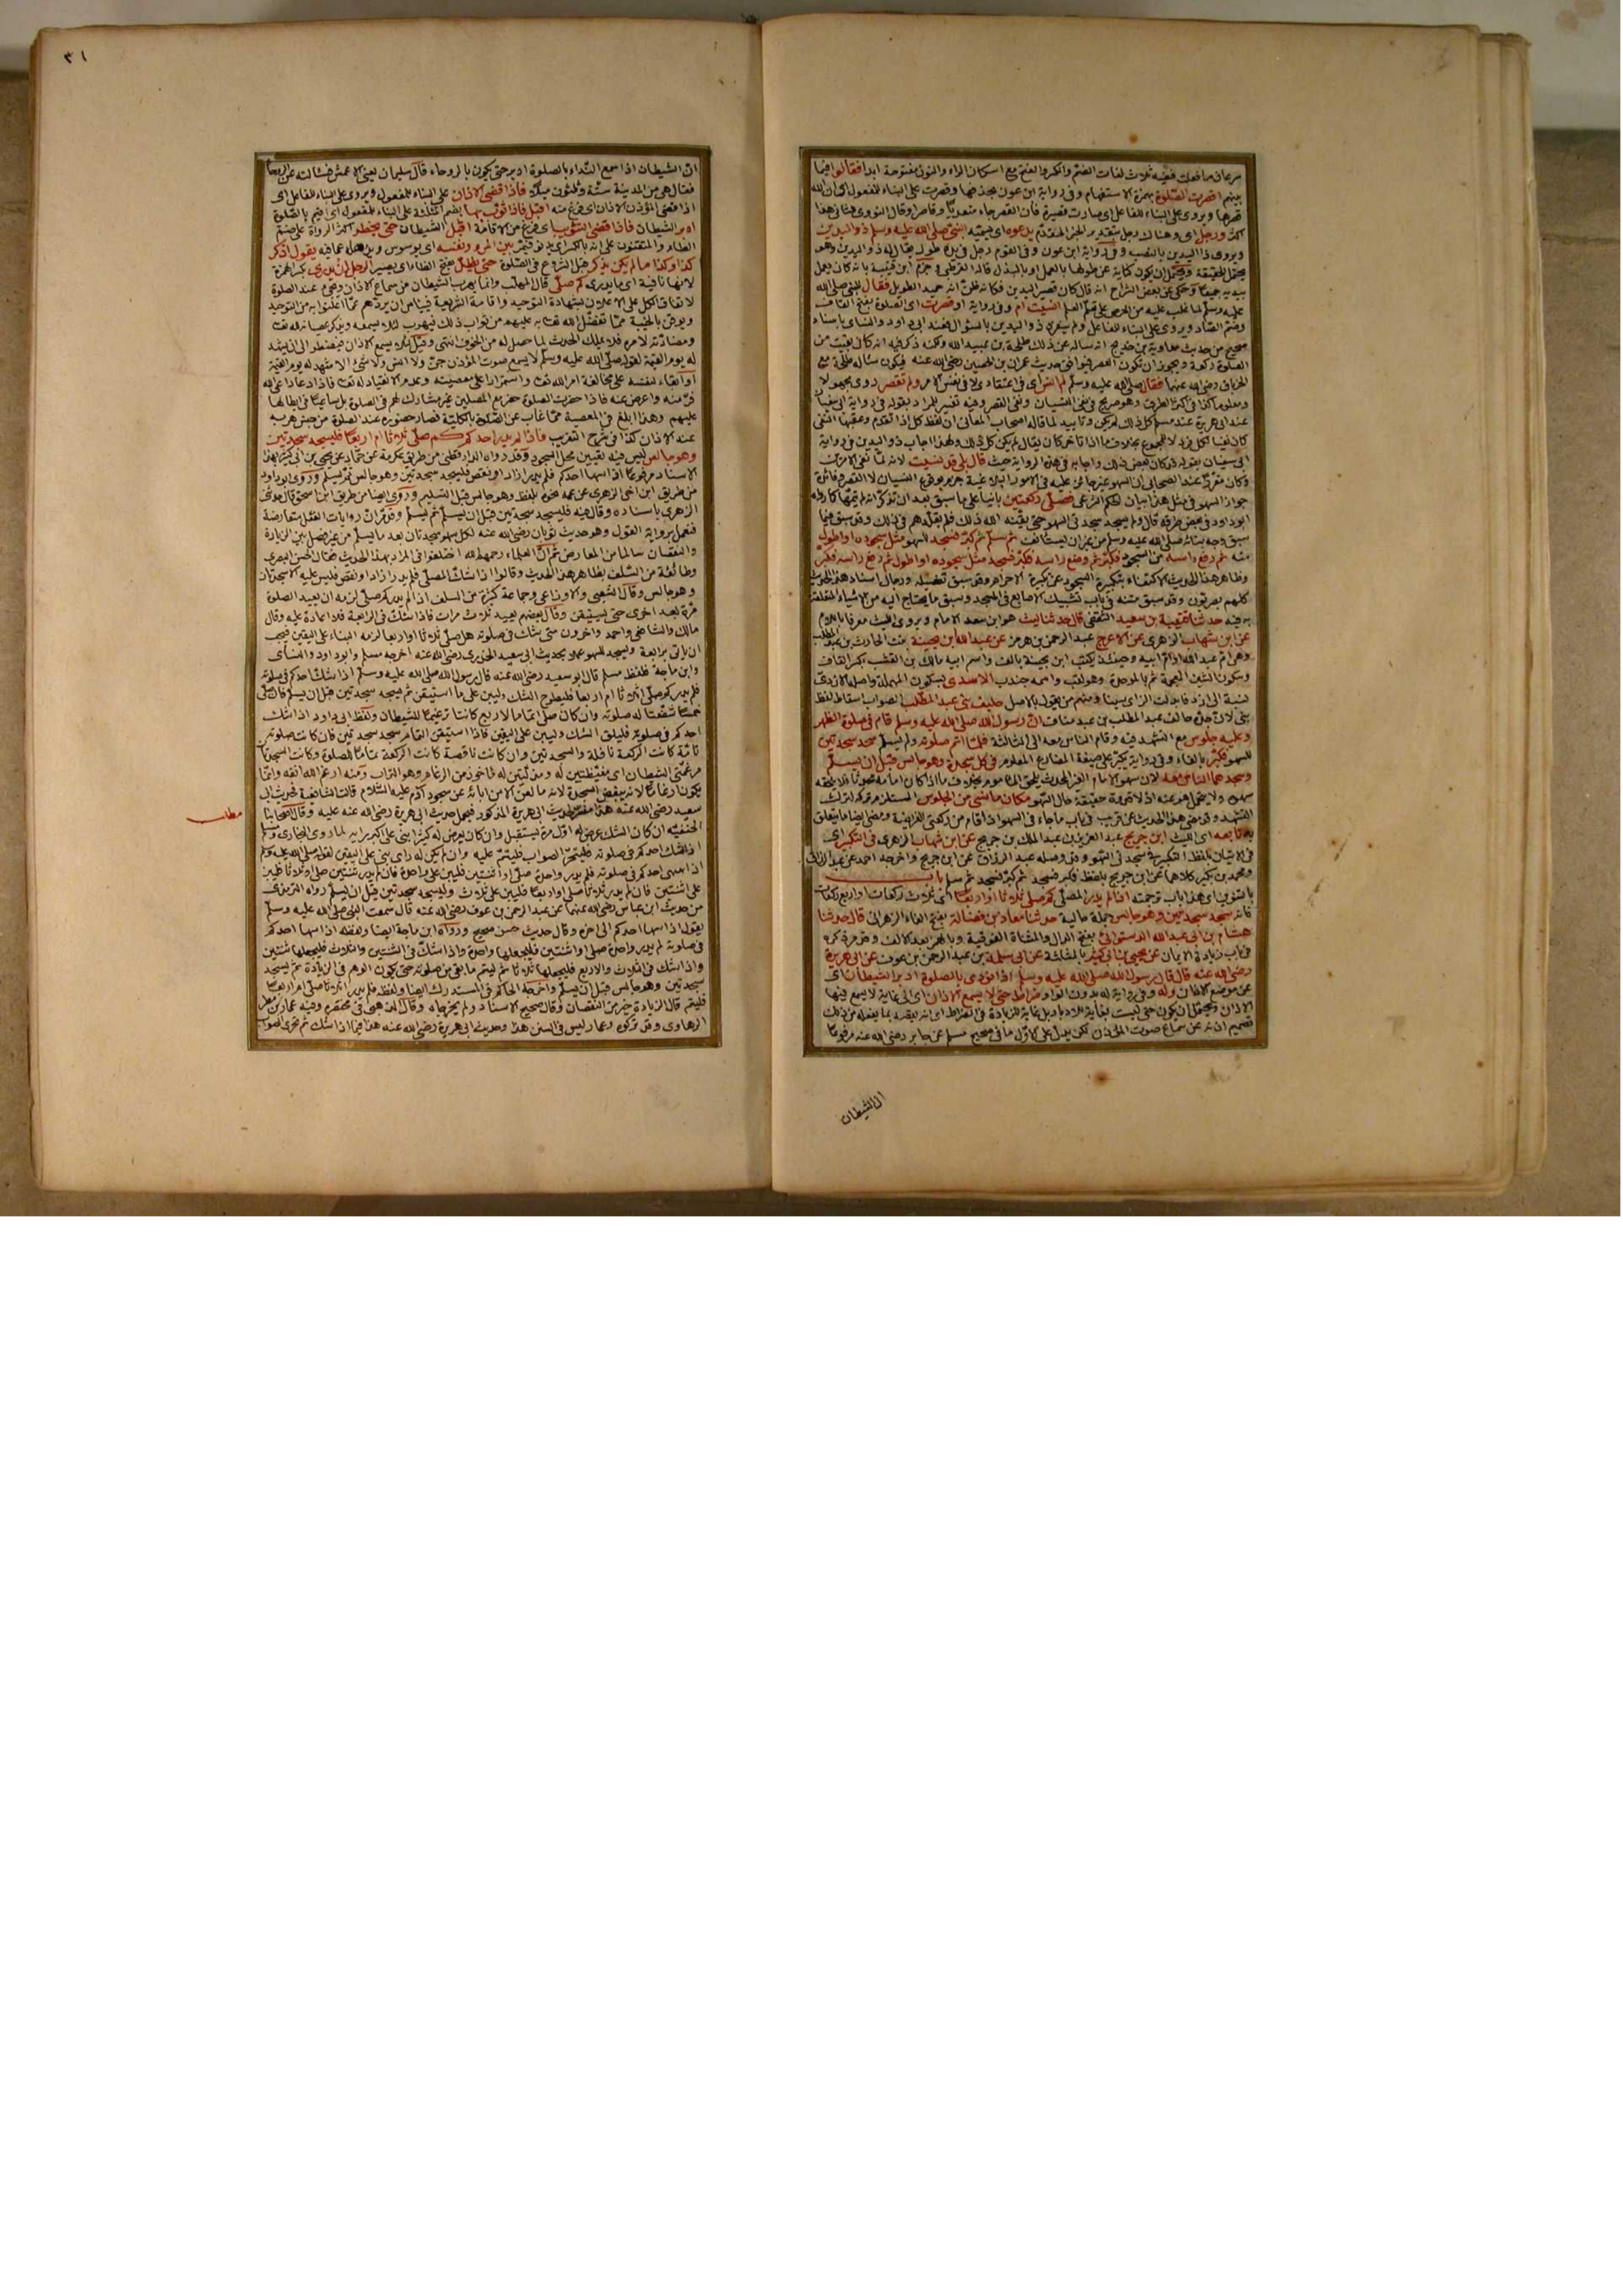 سرعان ما فعلت ففيه ثلاث لغات الضم والكسر والفتح مع اسكان الراء والنون مفتوحة ابدا فقالوا فيما
بينهم اقصرت الصلوة بهمزة الاستفهام وفى رواية ابن عون بحذفها وقصرت على البناء للمفعول اى ان الله
قصرها ويروى على البناء للفاعل اى صارت قصيرة فان القصر جاء متعديا وقاصرا وقال النووى هذا
اكثر ورجل اى وهناك رجل بتقدير الخبر المقدم يدعوه اى يسميه النبى صلى الله عليه وسلم ذو اليدين
ويروى ذا اليدين بالنصب وفى رواية ابن عون وفى القوم رجل فى يده طول يقال له ذو اليدين وهو
يحتمل الحقيقة ويحتمل ان يكون كناية عن طولها بالعمل او بالبذل قاله القرطبى وجزم ابن قتيبة بانه كان يعمل
بيديه جميعا وحكى عن بعض الشراح انه قال كان قصير اليدين فكانه ظن انه حميد الطويل فقال للنبى صلى الله
عليه وسلم لما غلب عليه من الحرص على تعلم العلم انسيت ام وفى رواية او قصرت اى الصلوة بفتح القاف
وضم الصاد ويروى على البناء للفاعل ولم ينفرد ذو اليدين بالسؤال فعند ابى داود والنسائى باسناد
صحيح من حديث معاوية بن خديج انه ساله عن ذلك طلحة بن عبيد الله ولكنه ذكر فيه انه كان بقيت من
الصلوة ركعة ويجوز ان تكون العصر فيوافق حديث عمران بن الحصين رضى الله عنه فيكون سأله طلحة مع
الخرباق رضى الله عنهما فقال صلى الله عليه وسلم لم انس اى فى اعتقادى لا فى نفس الامر ولم تقصر روى مجهولا
ومعلوما كذا فى اكثر الطرق وهو صريح فى نفى النسيان ونفى القصر وفيه تفسير للمراد بقوله فى رواية ابى سفيان
عند ابى هريرة عند مسلم كل ذلك لم يكن وتاييد لما قاله اصحاب المعانى ان لفظ كل اذا تقدم وعقبها النفى
كان نفيا لكل فرد لا للمجموع بخلاف ما اذا تاخر كان يقال لم يكن كل ذلك ولهذا اجاب ذو اليدين فى رواية
ابى سفيان بقوله قد كان بعض ذلك واجابه فى هذه الرواية حيث قال بلى قد نسيت لانه لما نفى الامرين
وكان مقررا عند الصحابى ان السهو غير جائز عليه فى الامور البلاغية جزم بوقوع النسيان لا القصر وفائدة
جواز السهو فى مثل هذا بيان الحكم الشرعى فصلى ركعتين بانيا على ما سبق بعد ان تذكر انه لم يتمها كما رواه
ابو داود فى بعض طرقه قال ولم يسجد سجدتى السهو حتى يقنه الله ذلك فلم يقلدهم فى ذلك وقد سبق فيما
سبق وجه بنائه صلى الله عليه وسلم من غير ان يستانف ثم سلم ثم كبر فسجد للسهو مثل سجوده او اطول
منه ثم رفع راسه من السجود فكبر ثم وضع راسه فكبر فسجد مثل سجوده او اطول ثم رفع راسه فكبر
وظاهر هذا الحديث الاكتفاء بتكبيرة السجود عن تكبيرة الاحرام وقد سبق تفصيله ورجال اسناد هذا الحديث
كلهم بصريون وقد سبق متنه فى باب تشبيك الاصابع فى المسجد وسبق ما يحتاج اليه من الاشياء المتعلقة
به فيه حدثنا قتيبة بن سعيد الثقفى قال حدثنا ليث هو ابن سعد الامام ويروى الليث معرفا باللام
عن ابن شهاب الزهرى عن الاعرج عبد الرحمن بن هرمز عن عبد الله ابن بحينة بنت الحارث بن عبد المطلب
وهى ام عبد الله او ام ابيه وحينئذ يكتب ابن بحينة بالف واسم ابيه مالك بن القشب بكسر القاف
وسكون الشين المعجمة ثم بالموحدة وهو لقب واسمه جندب الاسدى بسكون المهملة واصله الازدى
نسبة الى ازد فابدلت الزاى سينا ومنهم من يقول بالاصل حليف بنى عبد المطلب الصواب اسقاط لفظ
بنى لان جده حالف عبد المطلب بن عبد مناف ان رسول الله صلى الله عليه وسلم قام فى صلوة الظهر
وعليه جلوس مع التشهد فيه وقام الناس معه الى الثالثة فلما اتم صلوته ولم يسلم سجد سجدتين
للسهو فكبر بالفاء وفى رواية يكبر على صيغة المضارع المعلوم فى كل سجدة وهو جالس قبل ان يسلم
وسجدهما الناس معه لان سهو الامام الغير المحدث يلحق الماموم بخلاف ما اذا كان امامه محدثا فلا يلحقه
سهوه ولا يتحمل هو عنه اذ لا قدوة حقيقة حال السهو مكان ما نسى من الجلوس المستلزم تركه لترك
التشهد وقد مضى هذا الحديث عن قريب فى باب ما جاء فى السهو اذا قام من ركعتى الفريضة ومضى ايضا ما يتعلق
به تابعه اى الليث ابن جريج عبد العزيز بن عبد الملك بن جريج عن ابن شهاب الزهرى فى التكبير اى
فى الاتيان بلفظ التكبير فى سجدتى السهو وقد وصله عبد الرزاق عن ابن جريج واخرجه احمد عن عبد الرزاق
ومحمد بن بكر كلاهما عن ابن جريج بلفظ فكبر فسجد ثم كبر فسجد ثم سلم باب
بالتنوين اى هذا باب ترجمته اذا لم يدر المصلى كم صلى ثلاثا او اربعا اى ثلاث ركعات او اربع ركعات
فانه سجد سجدتين وهو جالس جملة حالية حدثنا معاذ بن فضالة بفتح الفاء الزهرانى قال حدثنا
هشام بن ابى عبد الله الدستوائى بفتح الدال والمثناة الفوقية وبالهمز بعد الالف وقد مر ذكره
فى باب زيادة الايمان عن يحيى بن ابى كثير بالمثلثة عن ابى سلمة بن عبد الرحمن بن عوف عن ابى هريرة
رضى الله عنه قال قال رسول الله صلى الله عليه وسلم اذا نودى بالصلوة ادبر الشيطان اى
عن موضع الاذان وله وفى رواية له بدون الواو ضراط حتى لا يسمع الاذان اى الى غاية لا يسمع فيها
الاذان ويحتمل ان يكون حتى ليست لغاية للادبار بل غاية للزيادة فى الضراط اى انه يقصد بما يفعله من ذلك
تصميم اذنه عن سماع صوت المؤذن لكن يدل على الاول ما فى صحيح مسلم عن جابر رضى الله عنه مرفوعا
ان الشيطان
٣١
ان الشيطان اذا سمع النداء بالصلوة ادبر حتى يكون بالروحاء قال سليمان يعنى الاعمش فسألته عن الروحاء
فقال هى من المدينة ستة وثلثون ميلا فاذا قضى الاذان على البناء للمفعول ويروى على البناء للفاعل اى
اذا قضى المؤذن الاذان اى فرغ منه اقبل فاذا ثوب بها بضم المثلثة على البناء للمفعول اى اقيم بالصلوة
ادبر الشيطان فاذا قضى التثويب اى فرغ من الاقامة اقبل الشيطان حتى يخطر اكثر الرواة على ضم
الطاء والمتقنون على انه بالكسر اى يدنو فيمر بين المرء ونفسه اى يوسوس ويذهله عما فيه يقول اذكر
كذا وكذا ما لم يكن يذكر قبل الشروع فى الصلوة حتى يظل بفتح الظاء اى يصير الرجل ان يدرى بكسر الهمزة
لانها نافية اى ما يدرى كم صلى قال المهلب وانما يهرب الشيطان من سماع الاذان ويجىء عند الصلوة
لاتفاق الكل على الاعلان بشهادة التوحيد واقامة الشريعة فيياس ان يردهم عما اعلنوا به من التوحيد
ويوقن بالخيبة مما تفضل الله تعالى به عليهم من ثواب ذلك فيهرب لئلا يسمعه ويذكر عصيانه لله تعالى
ومضادته لامره فلا يملك الحدث لما حصل له من الخوف انتهى وقيل لئلا يسمع الاذان فيضطر الى ان يشهد
له يوم القيمة لقوله صلى الله عليه وسلم لا يسمع صوت المؤذن جن ولا انس ولا شىء الا شهد له يوم القيمة
او ابقاء لنفسه على مخالفة امر الله تعالى واستمرارا على معصيته وعدم الانقياد له تعالى فاذا دعا داعى الله
فر منه واعرض عنه فاذا حضرت الصلوة حضر مع المصلين غير مشارك لهم فى الصلوة بل ساعيا فى ابطالها
عليهم وهذا ابلغ فى المعصية مما غاب عن الصلوة بالكلية فصار حضوره عند الصلوة من جنس هربه
عند الاذان كذا فى شرح التقريب فاذا لم يدر احدكم كم صلى ثلاثا ام اربعا فليسجد سجدتين
وهو جالس ليس فيه تعيين محل السجود وقد رواه الدارقطنى من طريق عكرمة بن عمار عن يحيى بن ابى كثير بهذا
الاسناد مرفوعا اذا سها احدكم فلم يدر ازاد او نقص فليسجد سجدتين وهو جالس ثم يسلم وروى ابو داود
من طريق ابن اخى الزهرى عن عمه نحوه بلفظ وهو جالس قبل التسليم وروى ايضا من طريق ابن اسحق قال حدثنى
الزهرى باسناده وقال فيه فليسجد سجدتين قبل ان يسلم ثم يسلم وقد مر ان روايات الفعل متعارضة
فنعمل برواية القول وهو حديث ثوبان رضى الله عنه لكل سهو سجدتان بعد ما يسلم من غير فصل بين الزيادة
والنقصان سالما من المعارض ثم ان العلماء رحمهم الله اختلفوا فى المراد بهذا الحديث فقال الحسن البصرى
وطائفة من السلف بظاهر هذا الحديث وقالوا اذا شك المصلى فلم يدر زاد او نقص فليس عليه الا سجدتان
وهو جالس وقال الشعبى والاوزاعى وجماعة كثيرة من السلف اذا لم يدر كم صلى لزمه ان يعيد الصلوة
مرة بعد اخرى حتى يستيقن وقال بعضهم يعيد ثلاث مرات فاذا شك فى الرابعة فلا اعادة عليه وقال
مالك والشافعى واحمد واخرون متى شك فى صلوته هل صلى ثلاثا او اربعا لزمه البناء على اليقين فيجب
ان ياتى برابعة ويسجد للسهو عملا بحديث ابى سعيد الخدرى رضى الله عنه اخرجه مسلم وابو داود والنسائى
وابن ماجة فلفظ مسلم قال ابو سعيد رضى الله عنه قال رسول الله صلى الله عليه وسلم اذا شك احدكم فى صلوته
فلم يدر كم صلى اثلاثا ام اربعا فليطرح الشك وليبن على ما استيقن ثم يسجد سجدتين قبل ان يسلم فان كان صلى
خمسا شفعتا له صلوته وان كان صلى اتماما لاربع كانتا ترغيما للشيطان ولفظ ابى داود اذا شك
احدكم فى صلوته فليلق الشك وليبن على اليقين فاذا استيقن التمام سجد سجدتين فان كانت صلوته
تامة كانت الركعة نافلة والسجدتين وان كانت ناقصة كانت الركعة تماما للصلوة وكانت السجدتان
مرغمتى الشيطان اى مغيظتين له ومذلتين له ماخوذ من الرغام وهو التراب ومنه ارغم الله انفه وانما
يكونا ارغاما لانه يبغض السجدة لانه ما لعن الا من ابائه عن سجود آدم عليه السلام قالت الشافعية فحديث ابى
سعيد رضى الله عنه هذا مفسر لحديث ابى هريرة المذكور فيحمل حديث ابى هريرة رضى الله عنه عليه وقال اصحابنا
مطلب
الحنفية ان كان الشك عرض له اول مرة يستقبل وان كان يعرض له كثيرا بنى على اكبر رايه لما روى البخارى ومسلم
اذا شك احدكم فى صلوته فليتحر الصواب فليتم عليه وان لم يكن له راى بنى على اليقين لقوله صلى الله عليه وسلم
اذا سهى احدكم فى صلوته فلم يدر واحدة صلى او اثنتين فليبن على واحدة فان لم يدر ثنتين صلى او ثلاثا فليبن
على اثنتين فان لم يدر ثلاثا صلى او اربعا فليبن على ثلاث وليسجد سجدتين قبل ان يسلم رواه الترمذى
من حديث ابن عباس رضى الله عنهما عن عبد الرحمن بن عوف رضى الله عنه قال سمعت النبى صلى الله عليه وسلم
يقول اذا سها احدكم الى اخره وقال حديث حسن صحيح ورواه ابن ماجة ايضا ولفظه اذا سها احدكم
فى صلوته لم يدر واحدة صلى او اثنتين فليجعلها واحدة واذا شك فى الثنتين والثلاث فليجعلها ثنتين
واذا شك فى الثلاث والاربع فليجعلها ثلاثا ثم ليتم ما بقى من صلوته حتى يكون الوهم فى الزيادة ثم يسجد
سجدتين وهو جالس قبل ان يسلم واخرجه الحاكم فى المستدرك ايضا ولفظه فلم يدر اثلاثا صلى ام اربعا
فليتم فان الزيادة خير من النقصان وقال صحيح الاسناد ولم يخرجاه وقال الذهبى فى مختصره وفيه عمار بن مطر
الرهاوى وقد تركوه وعمار ليس فى السنن هذا وحديث ابى هريرة رضى الله عنه هذا فيما اذا شك ثم تحرى الصواب